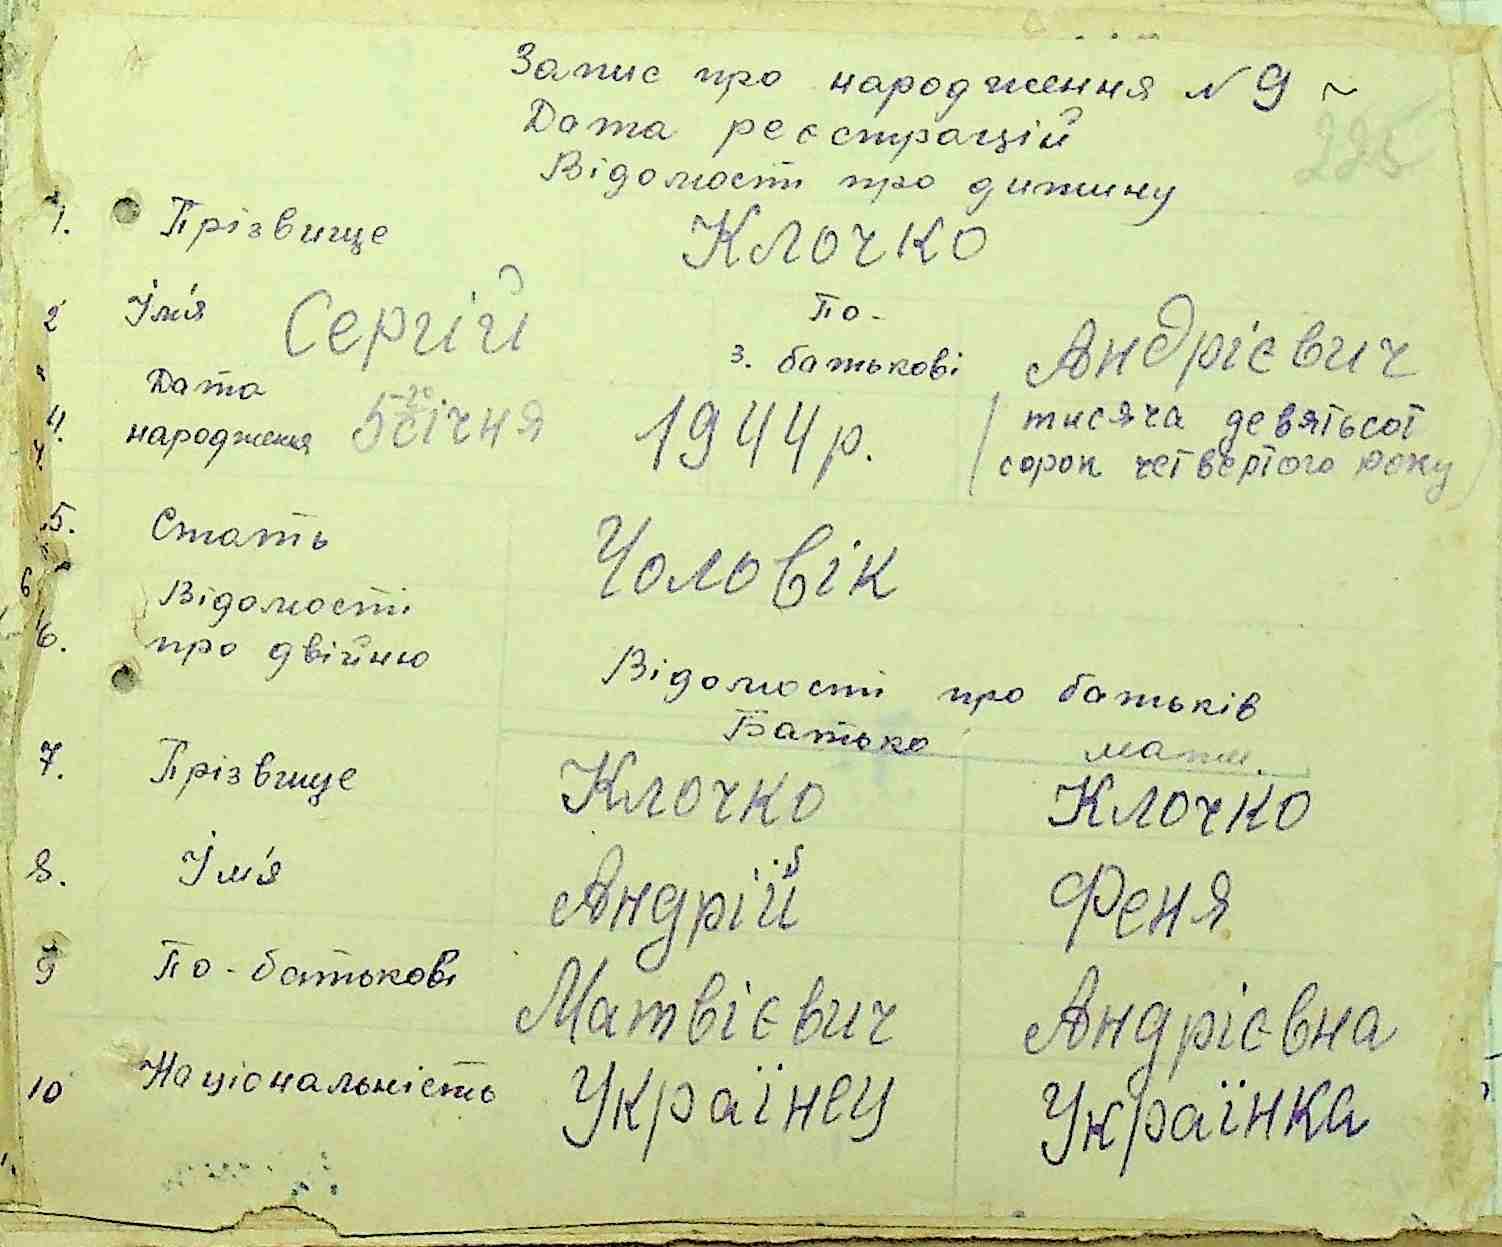 Запис про народження N 9 ~
225
Дата реєстрацій
Відомості про дитину
1. Прізвище Клочко
2 Ім'я Сергій 3. По-батькові Андрієвич
4. Дата народження 5 січня 1944 р. (тисяча девятьсот
сорок четвертого року)
5. Стать Чоловік
6. Відомості
про двійню
Відомості про батьків
Батько мати.
7. Прізвище Клочко Клочко
8. Ім'я Андрій Феня
9 По-батькові Матвієвич Андрієвна
10 Національність Українец Українка